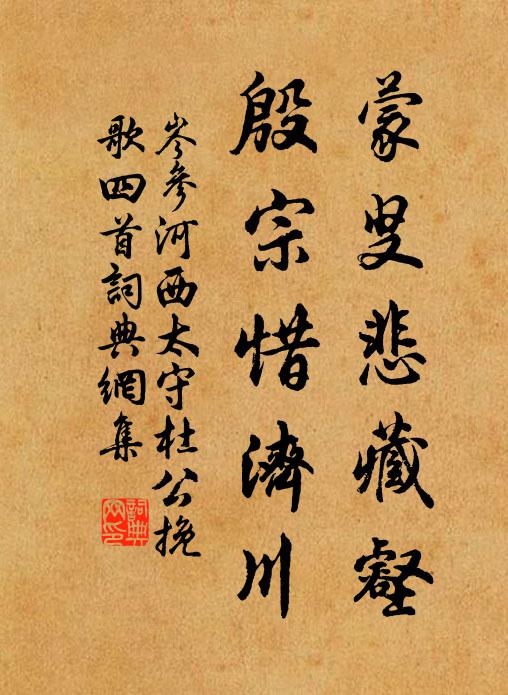 蒙叟悲藏壑
殷宗惜濟川
岑參河西太守杜公挽
歌四首詞典網集
詞典
网印